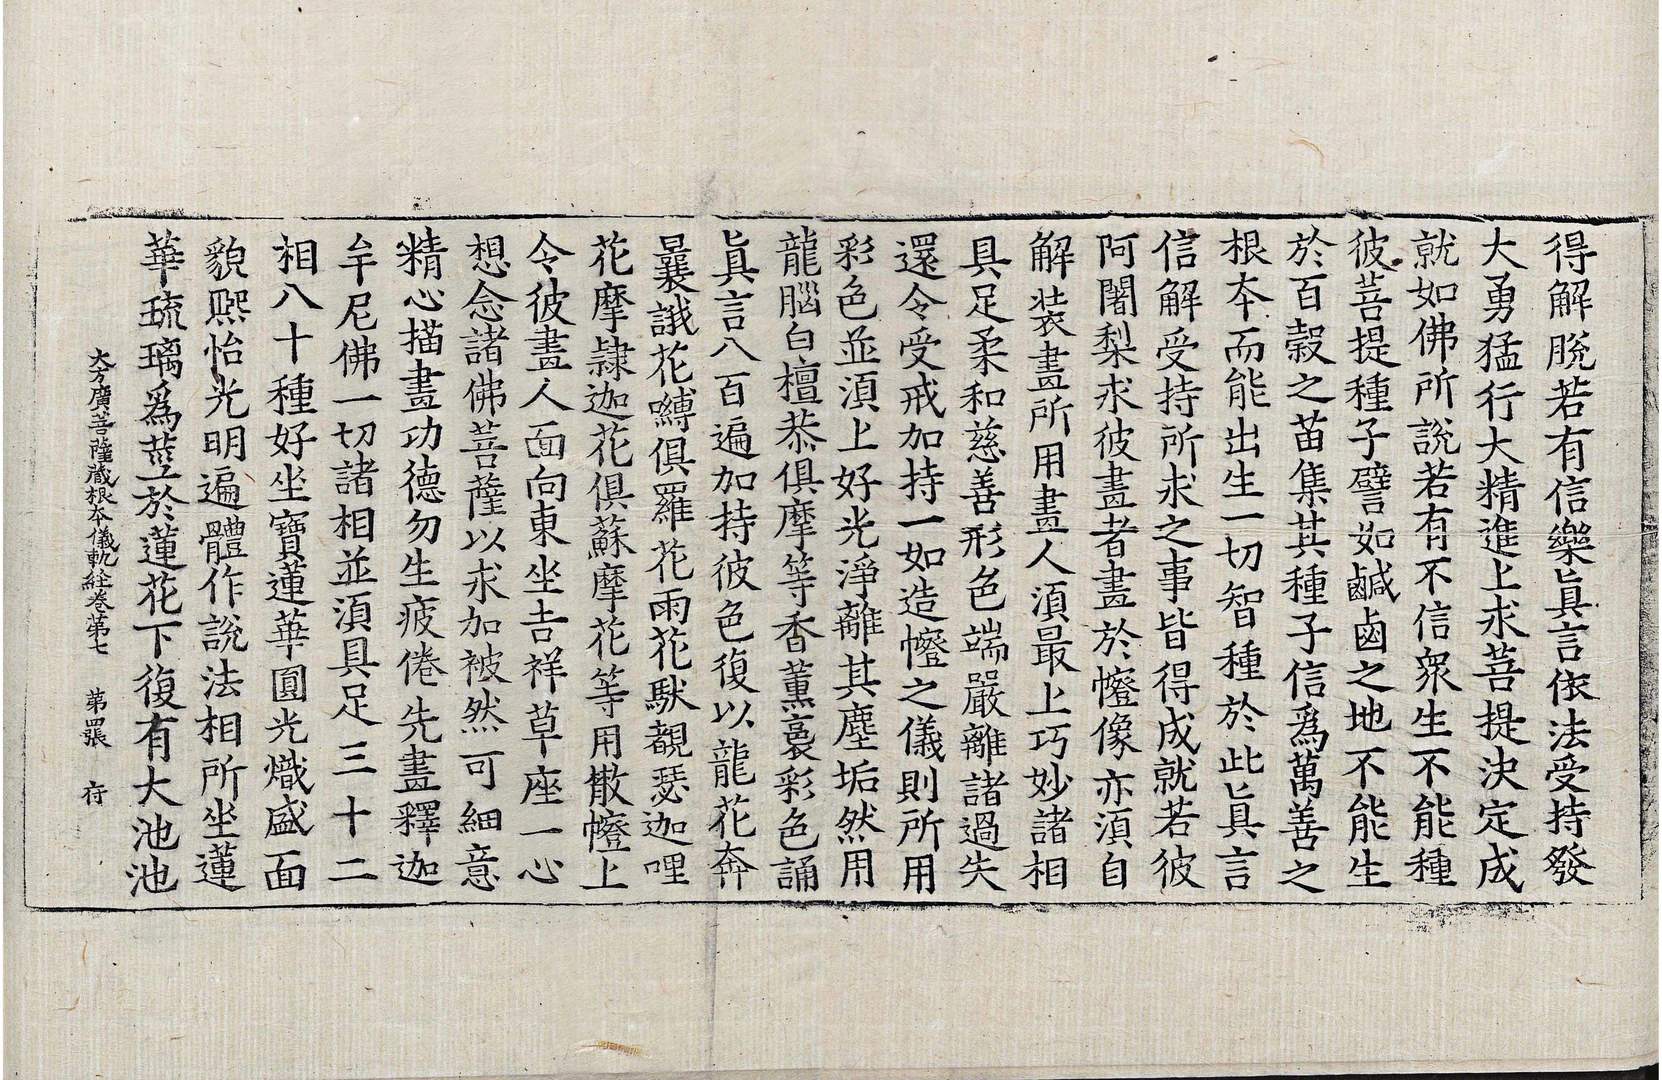 得解脫若有信樂眞言依法受持發
大勇猛行大精進上求菩提決定成
就如佛所說若有不信衆生不能種
彼菩提種子譬如鹹鹵之地不能生
於百穀之苗集其種子信爲萬善之
根本而能出生一切智種於此眞言
信解受持所求之事皆得成就若彼
阿闍梨求彼畫者畫於㡧像亦湏自
解裝畫所用畫人湏最上巧妙諸相
具足柔和慈善形色端嚴離諸過失
還令受戒加持一如造㡧之儀則所用
彩色並湏上好光淨離其塵垢然用
龍腦白檀恭俱摩等香薰裛彩色誦
眞言八百遍加持彼色復以龍花奔
曩誐花嚩俱羅花雨花馱覩瑟迦哩
花摩隷迦花俱蘇摩花等用散㡧上
令彼畫人面向東坐吉祥草座一心
想念諸佛菩薩以求加被然可細意
精心描畫功德勿生疲倦先畫釋迦
牟尼佛一切諸相並湏具足三十二
相八十種好坐寶蓮華圓光熾盛面
貌熙怡光明遍體作說法相所坐蓮
華琉璃爲莖於蓮花下復有大池池
大方廣菩薩藏根本儀軌経卷第七 第四張 府